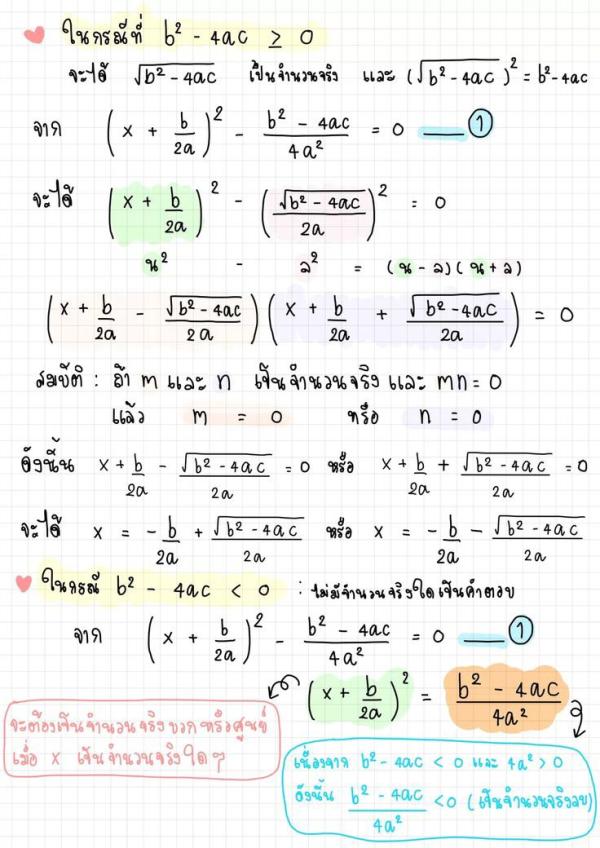 ในกรณีที่ b² - 4ac ≥ 0
จะได้ √(b² - 4ac) เป็นจำนวนจริง และ (√(b² - 4ac))² = b² - 4ac
จาก (x + b/2a)² - (b² - 4ac)/4a² = 0 ___ ①
จะได้ (x + b/2a)² - (√(b² - 4ac)/2a)² = 0
น² - ล² = (น - ล)(น + ล)
(x + b/2a - √(b² - 4ac)/2a)(x + b/2a + √(b² - 4ac)/2a) = 0
สมบัติ : ถ้า m และ n เป็นจำนวนจริง และ mn = 0
แล้ว m = 0 หรือ n = 0
ดังนั้น x + b/2a - √(b² - 4ac)/2a = 0 หรือ x + b/2a + √(b² - 4ac)/2a = 0
จะได้ x = -b/2a + √(b² - 4ac)/2a หรือ x = -b/2a - √(b² - 4ac)/2a
ในกรณี b² - 4ac < 0 : ไม่มีจำนวนจริงใดเป็นคำตอบ
จาก (x + b/2a)² - (b² - 4ac)/4a² = 0 ___ ①
(x + b/2a)² = (b² - 4ac)/4a²
จะต้องเป็นจำนวนจริงบวกหรือศูนย์
เมื่อ x เป็นจำนวนจริงใดๆ
เนื่องจาก b² - 4ac < 0 และ 4a² > 0
ดังนั้น (b² - 4ac)/4a² < 0 (เป็นจำนวนจริงลบ)